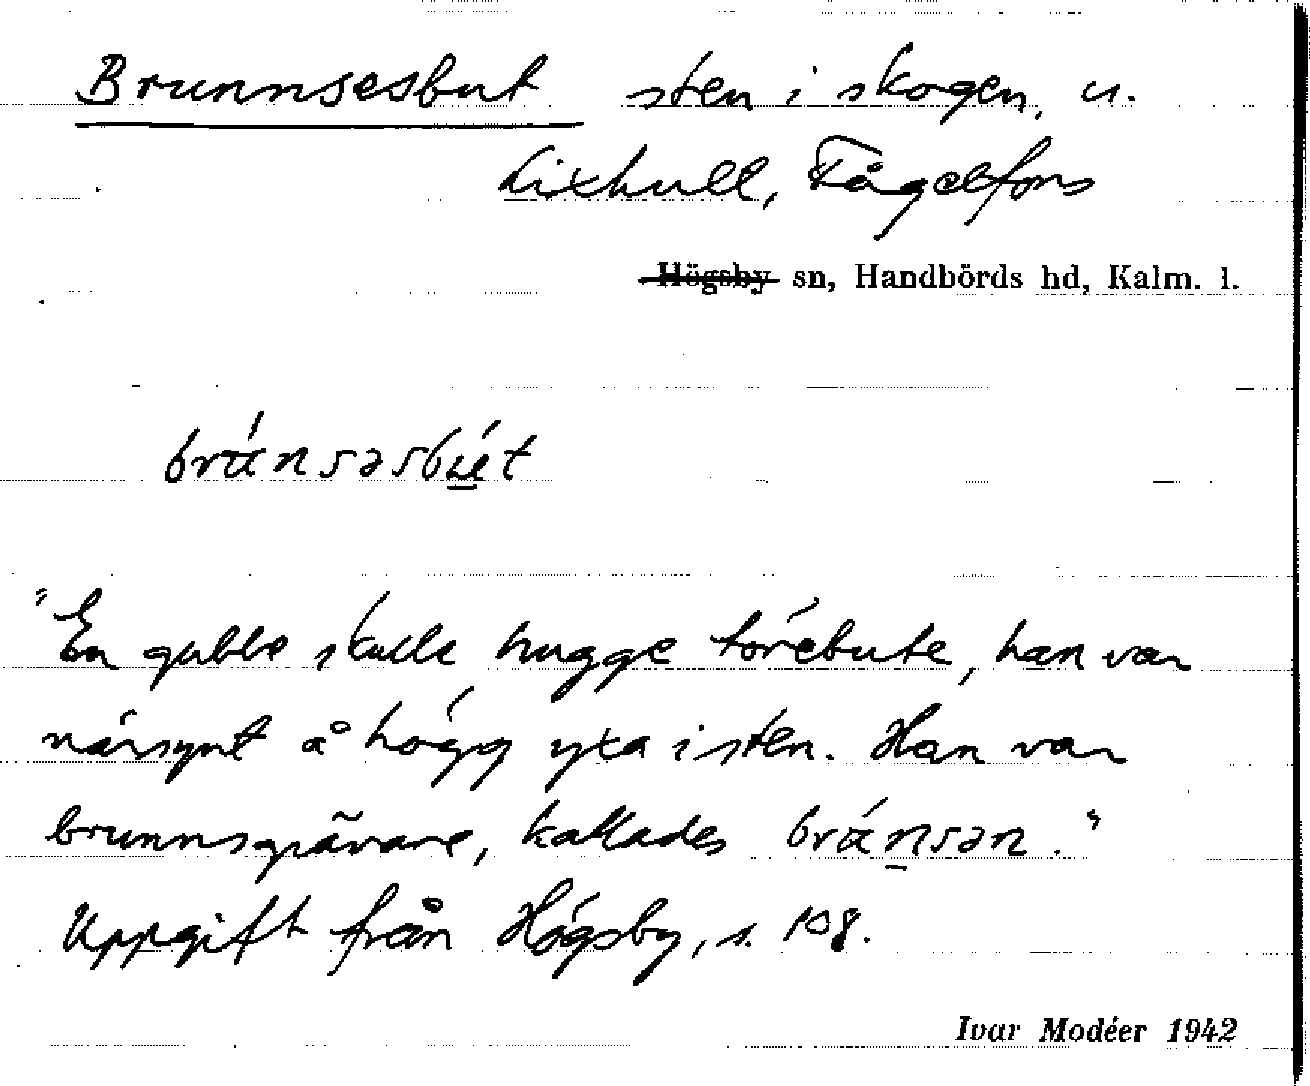 Brunnsesbut sten i skogen, u.
Lixhult, Fågelfors
Högsby sn, Handbörds hd, Kalm. l.
"En gubbe skulle hugge törebute, han var
närsynt å högg yxa i sten. Han var
brunnsgrävare, kallades
Uppgift från Högsby, s. 108.
Ivar Modéer 1942